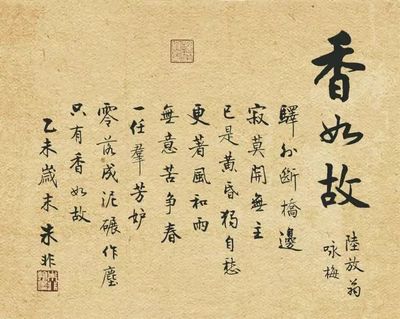 香如故
陸放翁
咏梅
驛外斷橋邊
寂莫開無主
已是黄昏獨自愁
更著風和雨
無意苦争春
一任羣芳妒
零落成泥碾作塵
只有香如故
乙未歲末 朱非